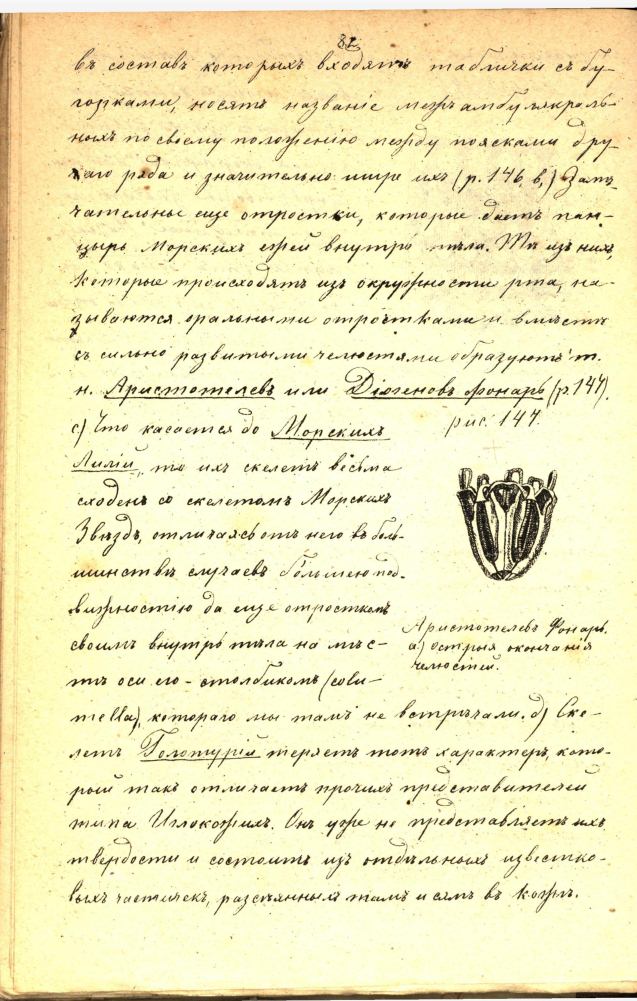 82
въ составъ которыхъ входятъ таблички съ бу-
горками, носятъ названіе межъамбулякраль-
ныхъ по своему положенію между поясками дру-
гаго ряда и значительно шире ихъ (р. 146, в,) Замѣ-
чательные еще отростки, которые даетъ пан-
цырь Морскихъ ежей внутрь тѣла. Тѣ изъ нихъ,
которые происходятъ изъ окружности рта, на-
зываются оральными отростками и вмѣстѣ
съ сильно развитыми челюстями образуютъ т.
н. Аристотелевъ или Діогеновъ фонарь (р. 147).
рис. 147.
с) Что касается до Морскихъ
Лилій, то ихъ скелетъ весьма
сходенъ со скелетомъ Морскихъ
Звѣздъ, отличаясь отъ него въ боль-
шинствѣ случаевъ большею под-
вижностію да еще отросткомъ
своимъ внутрь тѣла на мѣс-
тѣ оси его - столбикомъ (colu-
mella), котораго мы тамъ не встрѣчали. d) Ске-
летъ Голотурій теряетъ тотъ характеръ, кото-
рый такъ отличаетъ прочихъ представителей
типа Иглокожихъ. Онъ уже не представляетъ ихъ
твердости и состоитъ изъ отдѣльныхъ известко-
выхъ частичекъ, разсѣянныхъ тамъ и сямъ въ кожѣ.
Аристотелевъ Фонарь.
а) острыя окончанія
челюстей.